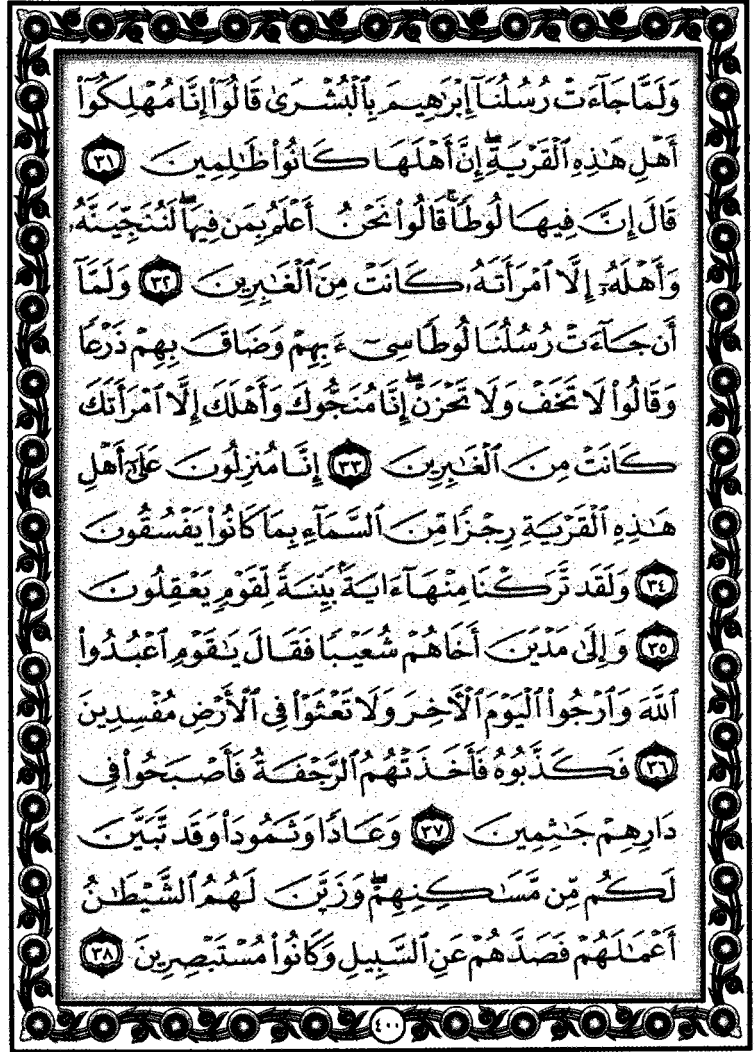 وَلَمَّا جَآءَتْ رُسُلُنَآ إِبْرَٰهِيمَ بِٱلْبُشْرَىٰ قَالُوٓا۟ إِنَّا مُهْلِكُوٓا۟
أَهْلِ هَٰذِهِ ٱلْقَرْيَةِ ۖ إِنَّ أَهْلَهَا كَانُوا۟ ظَٰلِمِينَ ٣١
قَالَ إِنَّ فِيهَا لُوطًا ۚ قَالُوا۟ نَحْنُ أَعْلَمُ بِمَن فِيهَا ۖ لَنُنَجِّيَنَّهُۥ
وَأَهْلَهُۥٓ إِلَّا ٱمْرَأَتَهُۥ كَانَتْ مِنَ ٱلْغَٰبِرِينَ ٣٢ وَلَمَّآ
أَن جَآءَتْ رُسُلُنَا لُوطًا سِىٓءَ بِهِمْ وَضَاقَ بِهِمْ ذَرْعًا
وَقَالُوا۟ لَا تَخَفْ وَلَا تَحْزَنْ ۖ إِنَّا مُنَجُّوكَ وَأَهْلَكَ إِلَّا ٱمْرَأَتَكَ
كَانَتْ مِنَ ٱلْغَٰبِرِينَ ٣٣ إِنَّا مُنزِلُونَ عَلَىٰٓ أَهْلِ
هَٰذِهِ ٱلْقَرْيَةِ رِجْزًا مِّنَ ٱلسَّمَآءِ بِمَا كَانُوا۟ يَفْسُقُونَ
٣٤ وَلَقَد تَّرَكْنَا مِنْهَآ ءَايَةًۢ بَيِّنَةً لِّقَوْمٍ يَعْقِلُونَ
٣٥ وَإِلَىٰ مَدْيَنَ أَخَاهُمْ شُعَيْبًا فَقَالَ يَٰقَوْمِ ٱعْبُدُوا۟
ٱللَّهَ وَٱرْجُوا۟ ٱلْيَوْمَ ٱلْءَاخِرَ وَلَا تَعْثَوْا۟ فِى ٱلْأَرْضِ مُفْسِدِينَ
٣٦ فَكَذَّبُوهُ فَأَخَذَتْهُمُ ٱلرَّجْفَةُ فَأَصْبَحُوا۟ فِى
دَارِهِمْ جَٰثِمِينَ ٣٧ وَعَادًا وَثَمُودَا۟ وَقَد تَّبَيَّنَ
لَكُم مِّن مَّسَٰكِنِهِمْ ۖ وَزَيَّنَ لَهُمُ ٱلشَّيْطَٰنُ
أَعْمَٰلَهُمْ فَصَدَّهُمْ عَنِ ٱلسَّبِيلِ وَكَانُوا۟ مُسْتَبْصِرِينَ ٣٨
٤٠٠